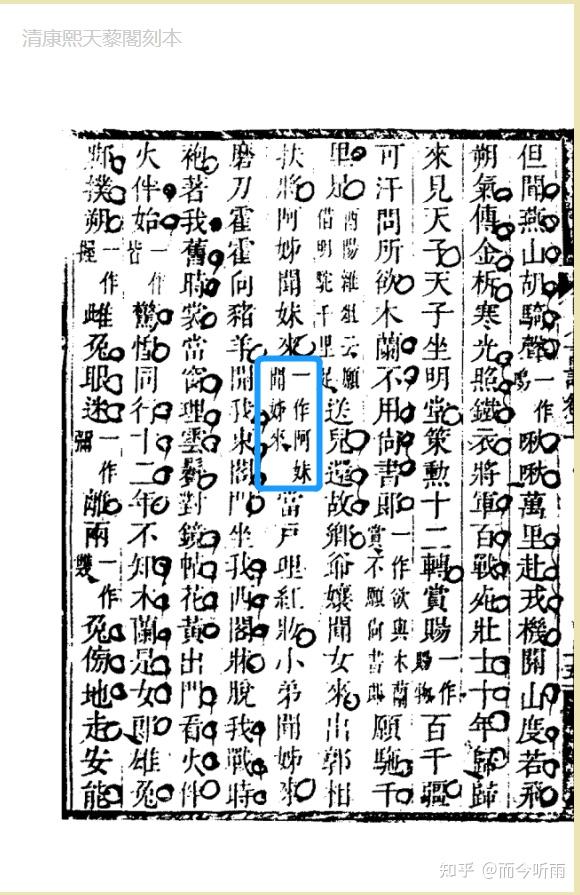 清康熙天藜閣刻本
但聞燕山胡騎聲一作鳴啾啾萬里赴戎機關山度若飛
朔氣傳金柝寒光照鐵衣將軍百戰死壯士十年歸歸
來見天子天子坐明堂策勳十二轉賞賜一作賜物百千疆
可汗問所欲木蘭不用尚書郎一作欲與木蘭賞不願尚書郎願馳千
里足酉陽雜俎云願借明駝千里足送兒還故鄉爺孃聞女來出郭相
扶將阿姊聞妹來一作阿妹聞姊來當戶理紅妝小弟聞姊來
磨刀霍霍向豬羊開我東閣門坐我西閣牀脫我戰時
袍著我舊時裳當窗理雲鬢對鏡帖花黃出門看火伴
火伴始一作皆驚惶同行十二年不知木蘭是女郎雄兔
腳撲朔一作握雌兔眼迷一作彌離兩一作雙兔傍地走安能
知乎 @而今听雨